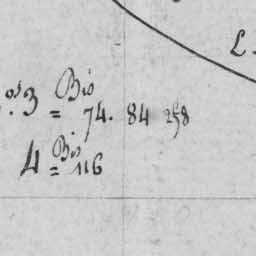 L.
os. 3 Bis = 74. 84 258
4 Bis = 116